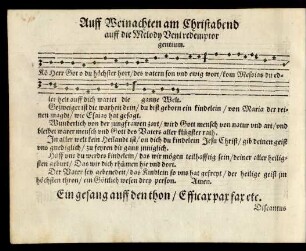 Auff Weinachten am Christabend
auff die Melody Veni redemptor
gentium.
Kō Herr Got o du höchster hort / des vatern son und ewig wort / kom Messias du ed-
ler heit auff dich wartet die gantze Welt.
Geschweigerst die warheit dem / du bist geborn ein kindelein / von Maria der rei-
nen magd / wie Esaias hat gesagt.
Wunderlich von der jungfrawen zart / wird Gott mensch von natur und art / und
bleibet warer mensch und Gott des Vaters aller
In aller welt kein Heilandt ist / on dich du kindelein Jesu Christ / gib deinen geist
uns gnediglich / zu feyren dis gantz
Hilff uns du werdes kindelein / das wir mögen teilhafftig sein / deiner aller heilig-
sten geburt / Das wir dich rhümen hie und dort.
Der Vater sey gebenedeyt / das Kindlein so uns hat gefreyt / der heilige geist im
höchsten thron / ein Göttlich wesen drey person. Amen.
Ein gesang auff den thon / Efficax pax fax etc.
Discantus